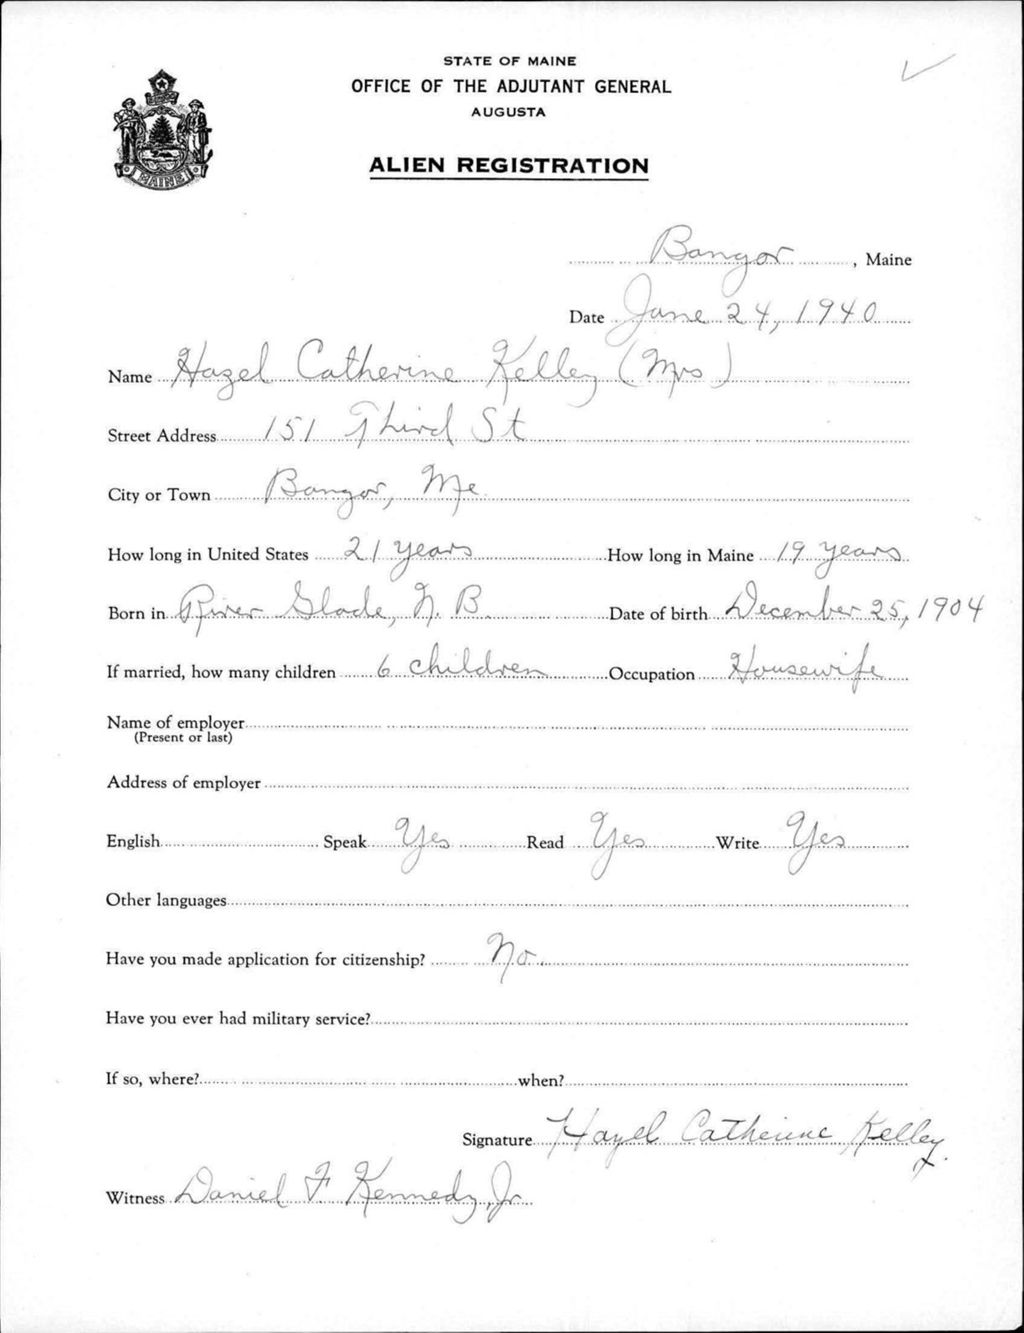 STATE OF MAINE
OFFICE OF THE ADJUTANT GENERAL
AUGUSTA
ALIEN REGISTRATION
MAINE
Bangor, Maine
Date June 24, 1940
Name Hazel Catherine Kelley (Mrs)
Street Address 151 Third St
City or Town Bangor, Me.
How long in United States 21 years How long in Maine 19 years
Born in River Glade, N. B. Date of birth December 25, 1904
If married, how many children 6 children Occupation Housewife
Name of employer
(Present or last)
Address of employer
English Speak Yes Read Yes Write Yes
Other languages
Have you made application for citizenship? No.
Have you ever had military service?
If so, where? when?
Signature Hazel Catherine Kelley
Witness Daniel F Kennedy, Jr.